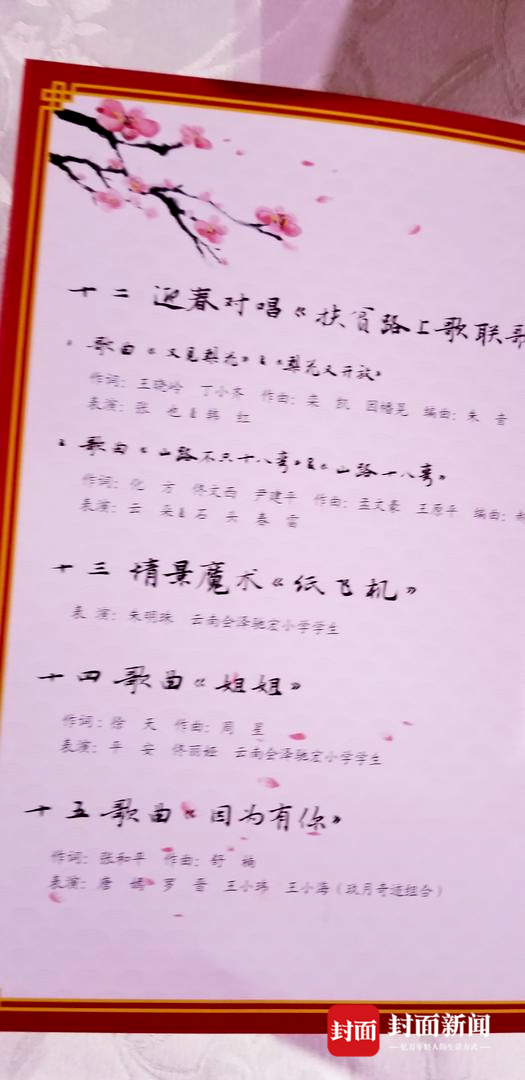 十二 迎春对唱《扶贫路上歌联
歌曲《又见梨花》&《梨花又开放》
作词：王晓岭 丁小齐 作曲：栾 凯 因幡晃 编曲：朱
表演：张 也 & 韩 红
2 歌曲《山路不只十八弯》&《山路十八弯》
作词：化 方 佟文西 尹建平 作曲：孟文豪 王原平 编曲：
表演：云 朵 & 石 头 春 雷
十三 情景魔术《纸飞机》
表 演：朱明珠 云南会泽驰宏小学学生
十四 歌曲《姐姐》
作词：徐 天 作曲：周 星
表演：平 安 佟丽娅 云南会泽驰宏小学学生
十五 歌曲《因为有你》
作词：张和平 作曲：舒 楠
表演：唐 嫣 罗 晋 王小玮 王小海（玖月奇迹组合）
封面 封面新闻
亿万年轻人的生活方式